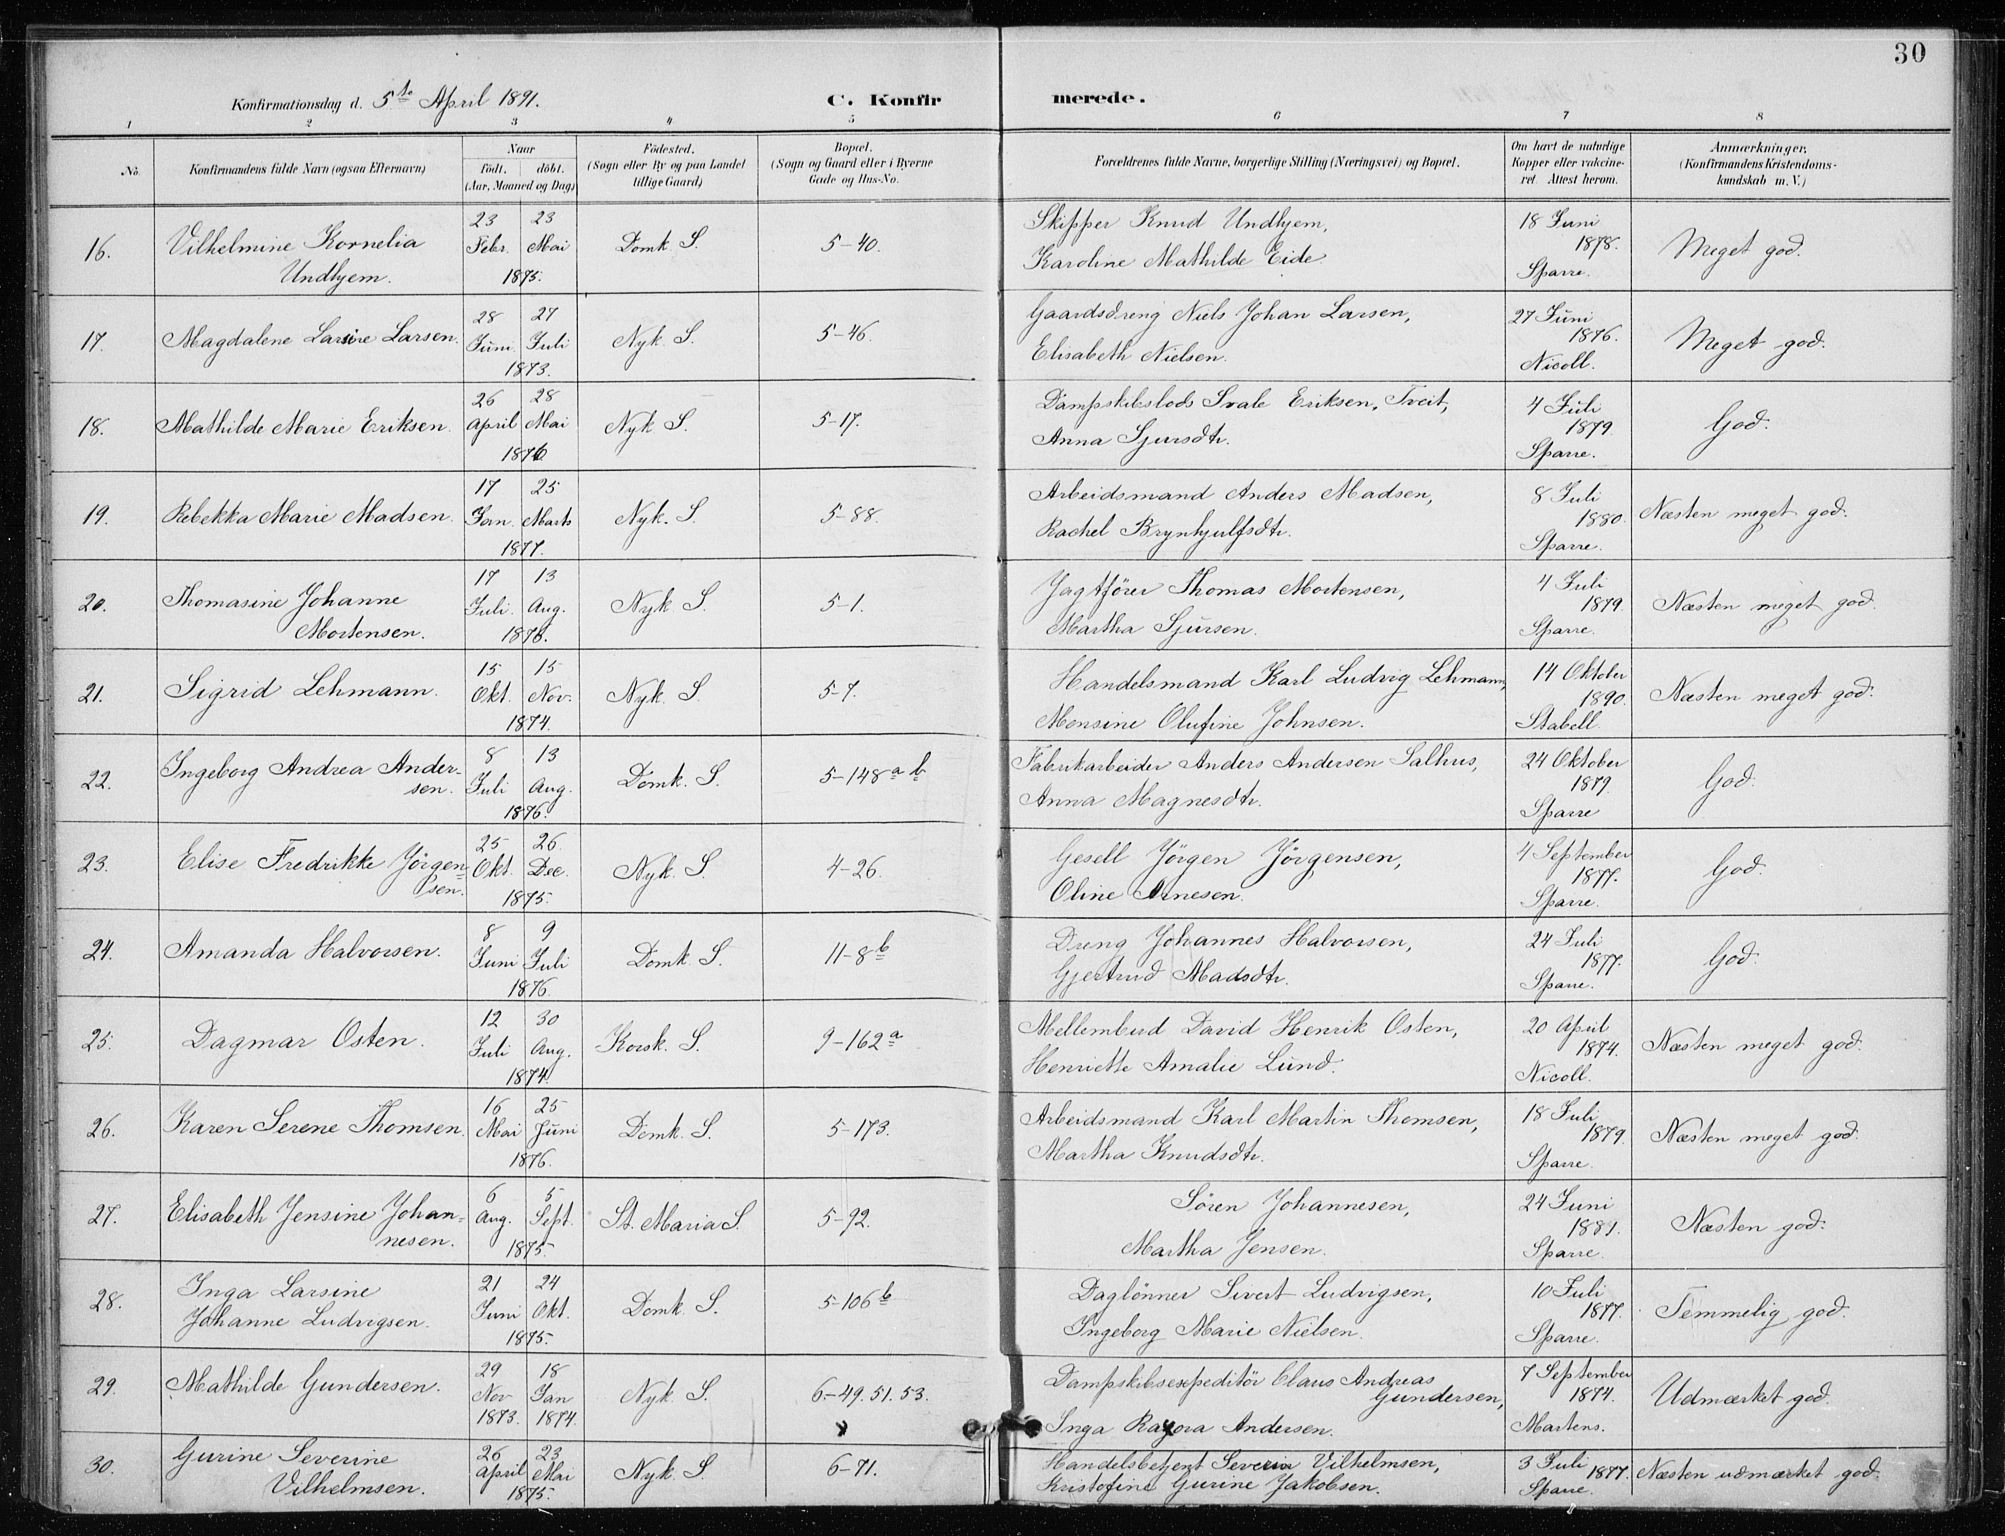 30
Konfirmationsdag d. 5te April 1891. C. Konfirmerede.
1 2 3 4 5 6 7 8
No. Konfirmandens fulde Navn (ogsaa Efternavn) Naar født. døbt. (Aar, Maaned og Dag) Fødested. (Sogn eller By og paa Landet tillige Gaard) Bopæl. (Sogn og Gaard eller i Byerne Gade og Hus-No. Forældrenes fulde Navne, borgerlige Stilling (Næringsvei) og Bopæl. Om havt de naturlige Kopper eller vaccineret. Attest herom. Anmærkninger. (Konfirmandens Kristendomskundskab m. V.)
16. Vilhelmine Kornelia Undhjem. 23 Febr. 23 Mai 1875. Domk S. 5-40. Skipper Knud Undhjem, Karoline Mathilde Eide 18 Juni 1878. Sparre. Meget god.
17. Magdalene Larsine Larsen. 28 Juni 27 Juli 1873. Nyk. S. 5-46. Gaardsdreng Niels Johan Larsen, Elisabeth Nielsen. 27 Juni 1876. Nicoll. Meget god.
18. Mathilde Marie Eriksen. 26 April 28 Mai 1876. Nyk. S. 5-17. Dampskibslods Svale Eriksen, Tveit, Anna Sjursdtr. 4 Juli 1879. Sparre. God.
19. Rebekka Marie Madsen. 17 Jan. 25 Marts 1877. Nyk. S. 5-88. Arbeidsmand Anders Madsen, Rachel Brynhjulfsdtr. 8 Juli 1880. Sparre. Næsten meget god.
20. Thomasine Johanne Mortensen. 17 Juli 13 Aug. 1876. Nyk. S. 5-1. Jagtfører Thomas Mortensen, Martha Sjursen. 4 Juli 1879. Sparre. Næsten meget god.
21. Sigrid Lehmann. 15 Okt. 15 Nov. 1874. Nyk. S. 5-7. Handelsmand Karl Ludvig Lehmann, Monsine Olufine Johnsen. 14 Oktober 1890. Stabell Næsten meget god.
22. Ingeborg Andrea Andersen. 8 Juli 13 Aug. 1876. Domk. S. 5-148 a b Fabrikarbeider Anders Andersen Salhus, Anna Magnesdtr. 24 Oktober 1879. Sparre God.
23. Elise Fredrikke Jørgensen. 25 Okt. 26 Dec. 1875. Nyk. S. 4-26. Gesell Jørgen Jørgensen, Oline Arnesen. 4 September 1877. Sparre. God.
24. Amanda Halvorsen. 8 Juni 9 Juli 1876. Domk. S. 11-8 b Dreng Johannes Halvorsen, Gjertrud Madsdtr. 24 Juli 1877. Sparre. God.
25. Dagmar Osten. 12 Juli 30 Aug. 1874. Korsk. S. 9-162 a Mellembud David Henrik Osten, Henriette Amalie Lund. 20 April 1874. Nicoll. Næsten meget god.
26. Karen Serene Thomsen. 16 Mai 25 Juni 1876. Domk. S. 5-173. Arbeidsmand Karl Martin Thomsen, Martha Knudsdtr. 18 Juli 1879. Sparre. Næsten meget god.
27. Elisabeth Jensine Johannesen. 6 Aug. 5 Sept. 1875. St. Maria S. 5-92. Søren Johannesen, Martha Jensen. 24 Juni 1881. Sparre. Næsten god.
28. Inga Larsine Johanne Ludvigsen. 21 Juni 24 Okt. 1875. Domk. S. 5-106 b Daglønner Sivert Ludvigsen, Ingeborg Marie Nielsen. 10 Juli 1877. Sparre. Temmelig god.
29. Mathilde Gundersen. 29 Nov 1873. 18 Jan 1874. Nyk. S. 6-49.51.53. Dampskibsexpeditør Claus Andreas Gundersen, Inga Andersen. 7 September 1874. Martens. Udmærket god.
30. Gurine Severine Vilhelmsen. 26 April 23 Mai 1875. Nyk. S. 6-71. Handelsbetjent Severin Vilhelmsen, Kristofine Gurine Jakobsen. 3 Juli 1877. Sparre. Næsten udmærket god.